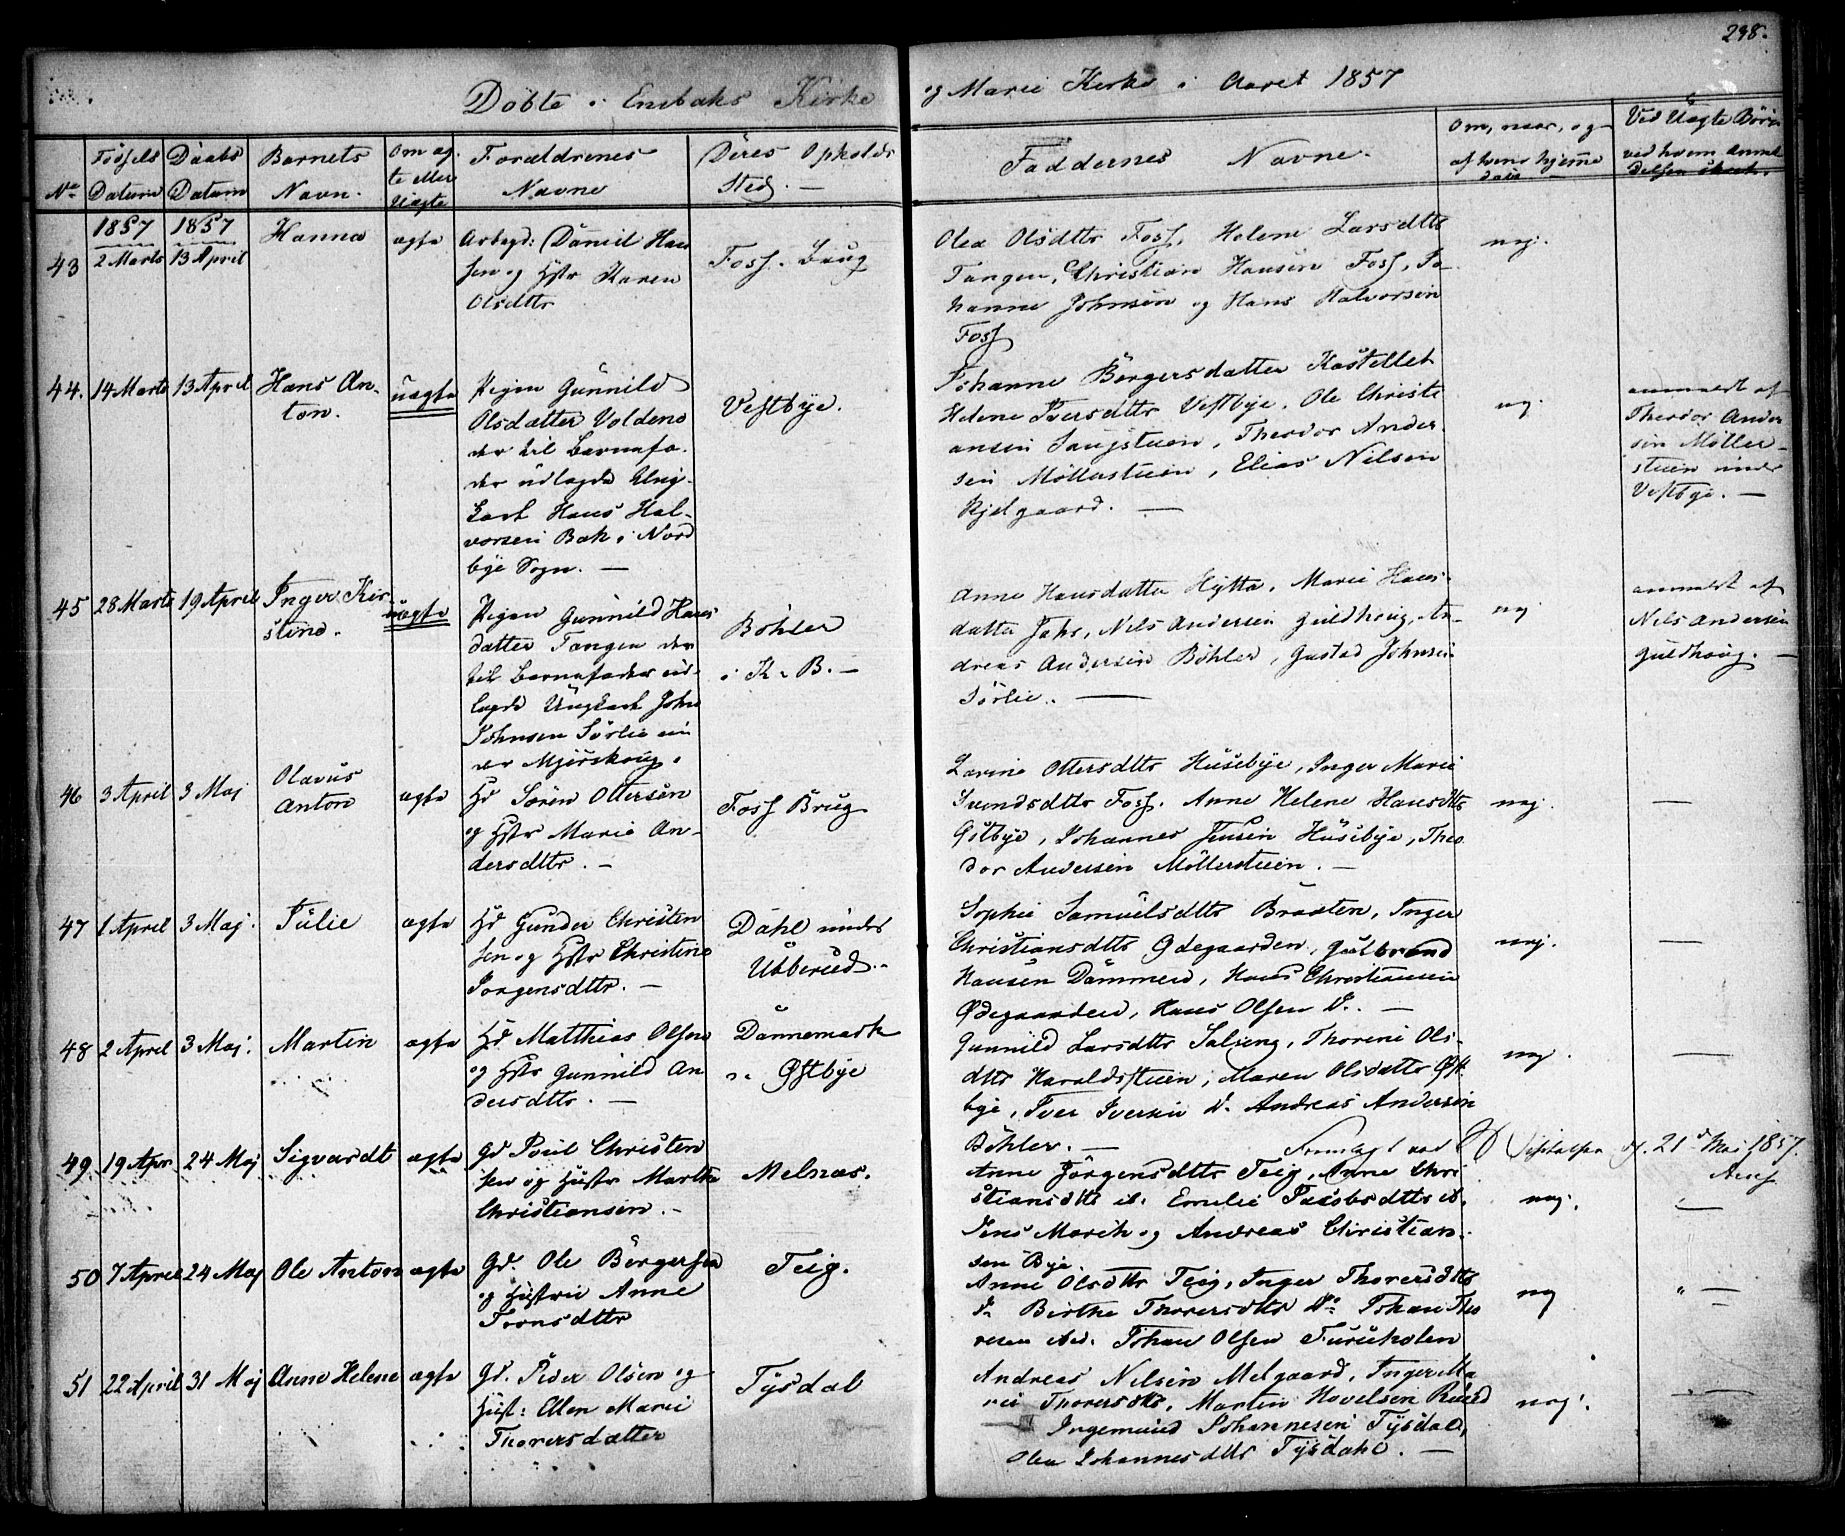 298.
Døbte i Enebaks Kirke og Marie Kirke i Aaret 1857
No
Fødsels Datum
Daabs Datum
Barnets Navn.
Om ægte eller Uægte
Forældrenes Navne
Deres Opholds Sted. —
Faddernes Navne.
Om, naar, og af hvem hjemmedøbt
Ved Uægte Børn ved hvem Anmeldelsen skeet.
43
1857
2 Marts
1857
13 April
Hanna
ægte
Arbeyd: Daniel Han
sen og Hstr Karen
Olsdttr
Foss. Brug
Olea Olsdttr Foss, Helene Larsdttr
Tangen, Christian Hansen Foss, Jo-
hanne Johnsen og Hans Halvorsen
Foss
nej.
44.
14 Marts
13 April
Hans An-
ton.
uægte
Pigen Gunnild
Olsdatter Voldene
der til Barnefa-
der udlagde Ung-
karl Hans Hal-
vorsen Bak i Nord
bye Sogn. —
Vestbye.
Johanne Børgersdatter Kastellet
Helene Iversdttr Vestbye. Ole Christi
ansen Saugstuen, Theodor Ander-
sen Møllerstuen, Elias Nilsen
Kjelgaard. —
nej.
anmeldt af
Theodor Ander
sen Møller-
stuen under
Vestbye. —
45
28 Marts
19 April
Inger Kir-
stine.
uægte
Pigen Gunnild Hans
datter Tangen der
til Barnefader ud-
lagde Ungkarl John
Johnsen Sørlie un
der Mjørskoug.
Bøhler
i K. B. —
Anne Hansdatter Hytta, Marie Hans-
datter Jahr, Nils Andersen Guldhoug, An-
dreas Andersen Bøhler, Gustad Johnsen
Sørlie. —
nej
anmeldt af
Nils Andersen
Guldhoug. —
46
3 April
3 Maj
Olavus
Anton
ægte
Hd Søren Ottersen
og Hstr Marie An-
dersdttr. —
Foss Brug
Lavine Ottersdttr Husebye, Inger Marie
Svendsdttr Foss. Anne Helene Hansdttr
Østbye, Johannes Jensen Husebye, Theo
dor Andersen Møllerstuen. —
nej.
—
47
1 April
3 Maj.
Julie
ægte
Hd Gunder Christen
sen og Hstr Christine
Jørgensdttr. —
Dahl under
Ubberud. -
Sophie Samuelsdttr Braaten, Inger
Christiansdttr Ødegaarden, Gulbrand
Hansen Dammen, Hans Christiansen
Ødegaarden, Hans Olsen d. —
nej.
—
48
2 April
3 Maj.
Martin
ægte
Hd Matthias Olsen
og Hstr Gunnild An
dersdttr. —
Dannemark
u. Østbye
Gunnild Larsdttr Salieng, Thorine Ols-
dttr Haraldstuen, Maren Olsdattr Øst
bye, Iver Iversen d. Andreas Andersen
Bøhler. —
nej.
—
21 d Mai 1857.
49.
19 Apr
24 Maj
Sigvardt
ægte
Gd Poul Christen
sen og Hustr Marthe
Christiansen. -
Melnæs.
Anne Jørgensdttr Teig, Anne Chri
stiansdttr ib. Emelie Jacobsdttr ib.
Jens March og Andreas Christian-
sen Bye.
nej.
—
50
7 April
24 Maj
Ole Anton
ægte
Gd. Ole Børgersen
og Hustrue Anne
Tronsdttr
Teig.
Anne Olsdttr Teig, Inger Thorersdttr
d. Birthe Thorersdttr do Johan Tho
resen ibd. Johan Olsen Furuholen
nej
" —
51
22 April
31 Maj
Anne Helene
ægte
Gd. Peder Olsen og
Hust: Ellen Marie
Thorersdatter
Tysdal
Andreas Nilsen Melgaard, Inger Ma
rie Thorersdttr, Martin Hovelsen Ruud
Ingemund Johannesen Tysdale,
Olea Johannesdttr Tysdahl. —
nej.
—